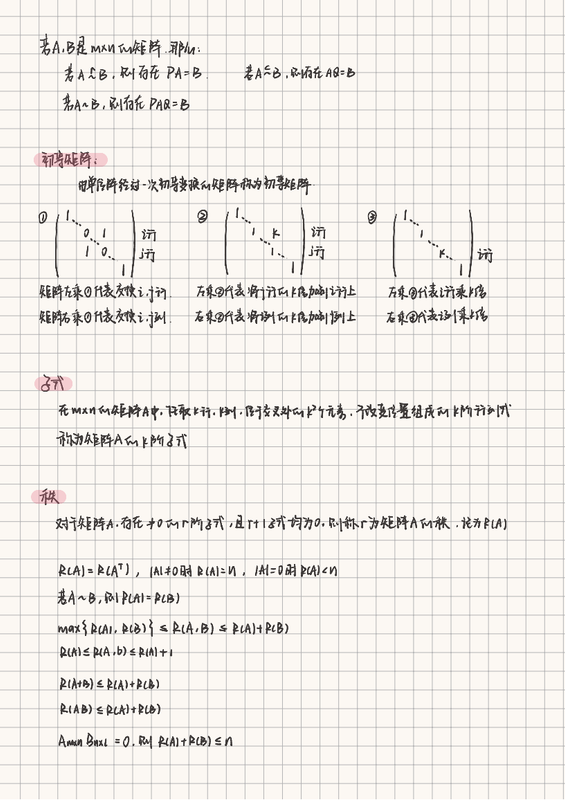 若A,B是m×n的矩阵,那么:
若A r~ B,则存在 PA=B. 若A c~ B,则存在AQ=B
若A~B,则存在 PAQ=B
初等矩阵:
由单位阵经过一次初等变换的矩阵称为初等矩阵
① ② ③
1 1 1
0 1 i行 1 k i行 1
1 0 j行 1 j行 k i行
1 1 1
矩阵左乘①代表交换i,j行. 左乘②代表将j行的k倍加到i行上 左乘③代表i行乘k倍
矩阵右乘①代表交换i,j列. 右乘②代表将i列的k倍加到j列上 右乘③代表i列乘k倍
子式
在m×n的矩阵A中,任取k行,k列,位于交叉处的k²个元素,不改变位置组成的k阶行列式
称为矩阵A的k阶子式
秩
对于矩阵A,存在≠0的r阶子式,且r+1子式均为0,则称r为矩阵A的秩.记为R(A)
R(A)=R(Aᵀ), |A|≠0时 R(A)=n, |A|=0时 R(A)<n
若A~B,则R(A)=R(B)
max{R(A),R(B)} ≤ R(A,B) ≤ R(A)+R(B)
R(A)≤R(A,b)≤R(A)+1
R(A+B)≤R(A)+R(B)
R(AB)≤R(A)+R(B)
Am×n Bn×l =0.则 R(A)+R(B)≤n